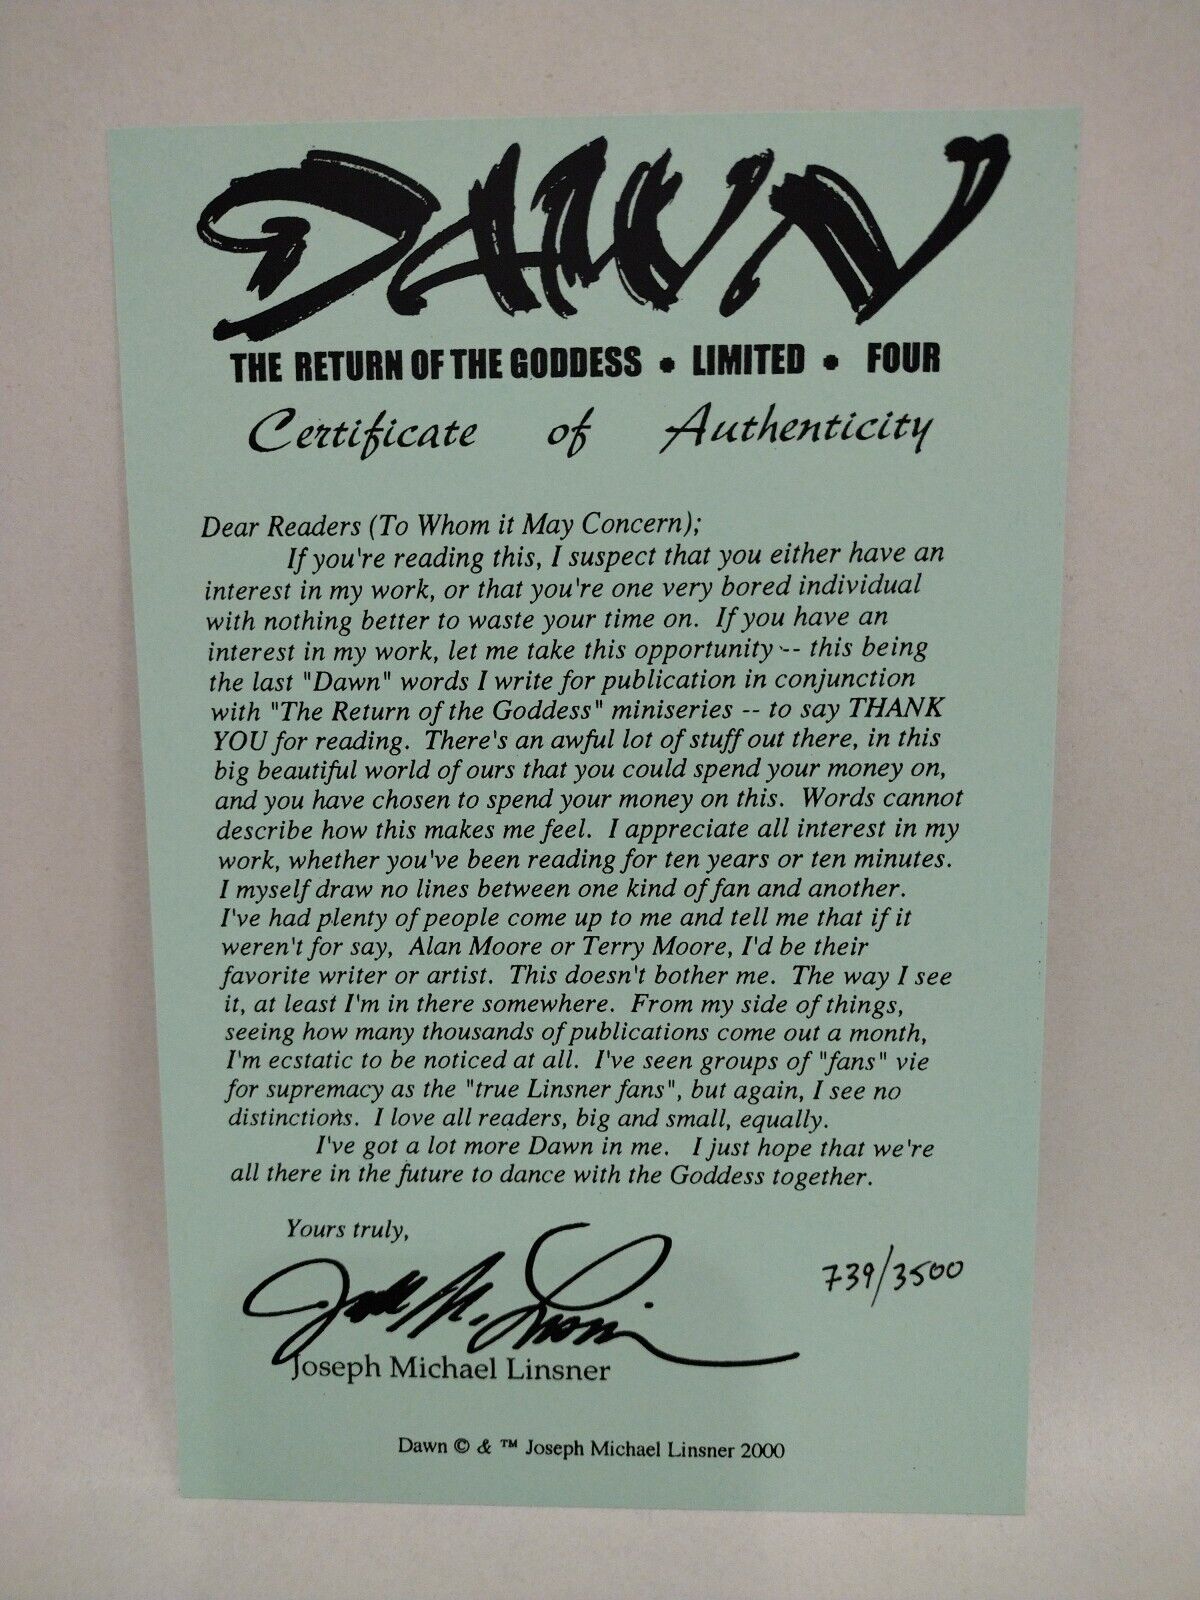 DAWN
THE RETURN OF THE GODDESS • LIMITED • FOUR
Certificate of Authenticity
Dear Readers (To Whom it May Concern);
If you're reading this, I suspect that you either have an
interest in my work, or that you're one very bored individual
with nothing better to waste your time on. If you have an
interest in my work, let me take this opportunity -- this being
the last "Dawn" words I write for publication in conjunction
with "The Return of the Goddess" miniseries -- to say THANK
YOU for reading. There's an awful lot of stuff out there, in this
big beautiful world of ours that you could spend your money on,
and you have chosen to spend your money on this. Words cannot
describe how this makes me feel. I appreciate all interest in my
work, whether you've been reading for ten years or ten minutes.
I myself draw no lines between one kind of fan and another.
I've had plenty of people come up to me and tell me that if it
weren't for say, Alan Moore or Terry Moore, I'd be their
favorite writer or artist. This doesn't bother me. The way I see
it, at least I'm in there somewhere. From my side of things,
seeing how many thousands of publications come out a month,
I'm ecstatic to be noticed at all. I've seen groups of "fans" vie
for supremacy as the "true Linsner fans", but again, I see no
distinctions. I love all readers, big and small, equally.
I've got a lot more Dawn in me. I just hope that we're
all there in the future to dance with the Goddess together.
Yours truly,
739/3500
Joseph Michael Linsner
Dawn © & ™ Joseph Michael Linsner 2000